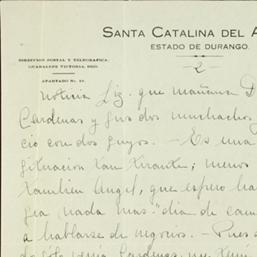 SANTA CATALINA DEL A
ESTADO DE DURANGO.
DIRECCION POSTAL Y TELEGRAFICA:
GUADALUPE VICTORIA, DGO.
APARTADO No.
2
noticia Liz. que mañana D
Cardenas y sus dos muchachos
cio con dos suyos. - Es una
situacion tan tirante; menos
tambien Angel, que espero ha
ga nada mas "dia de cam
a hablarse de negocios. - Pues